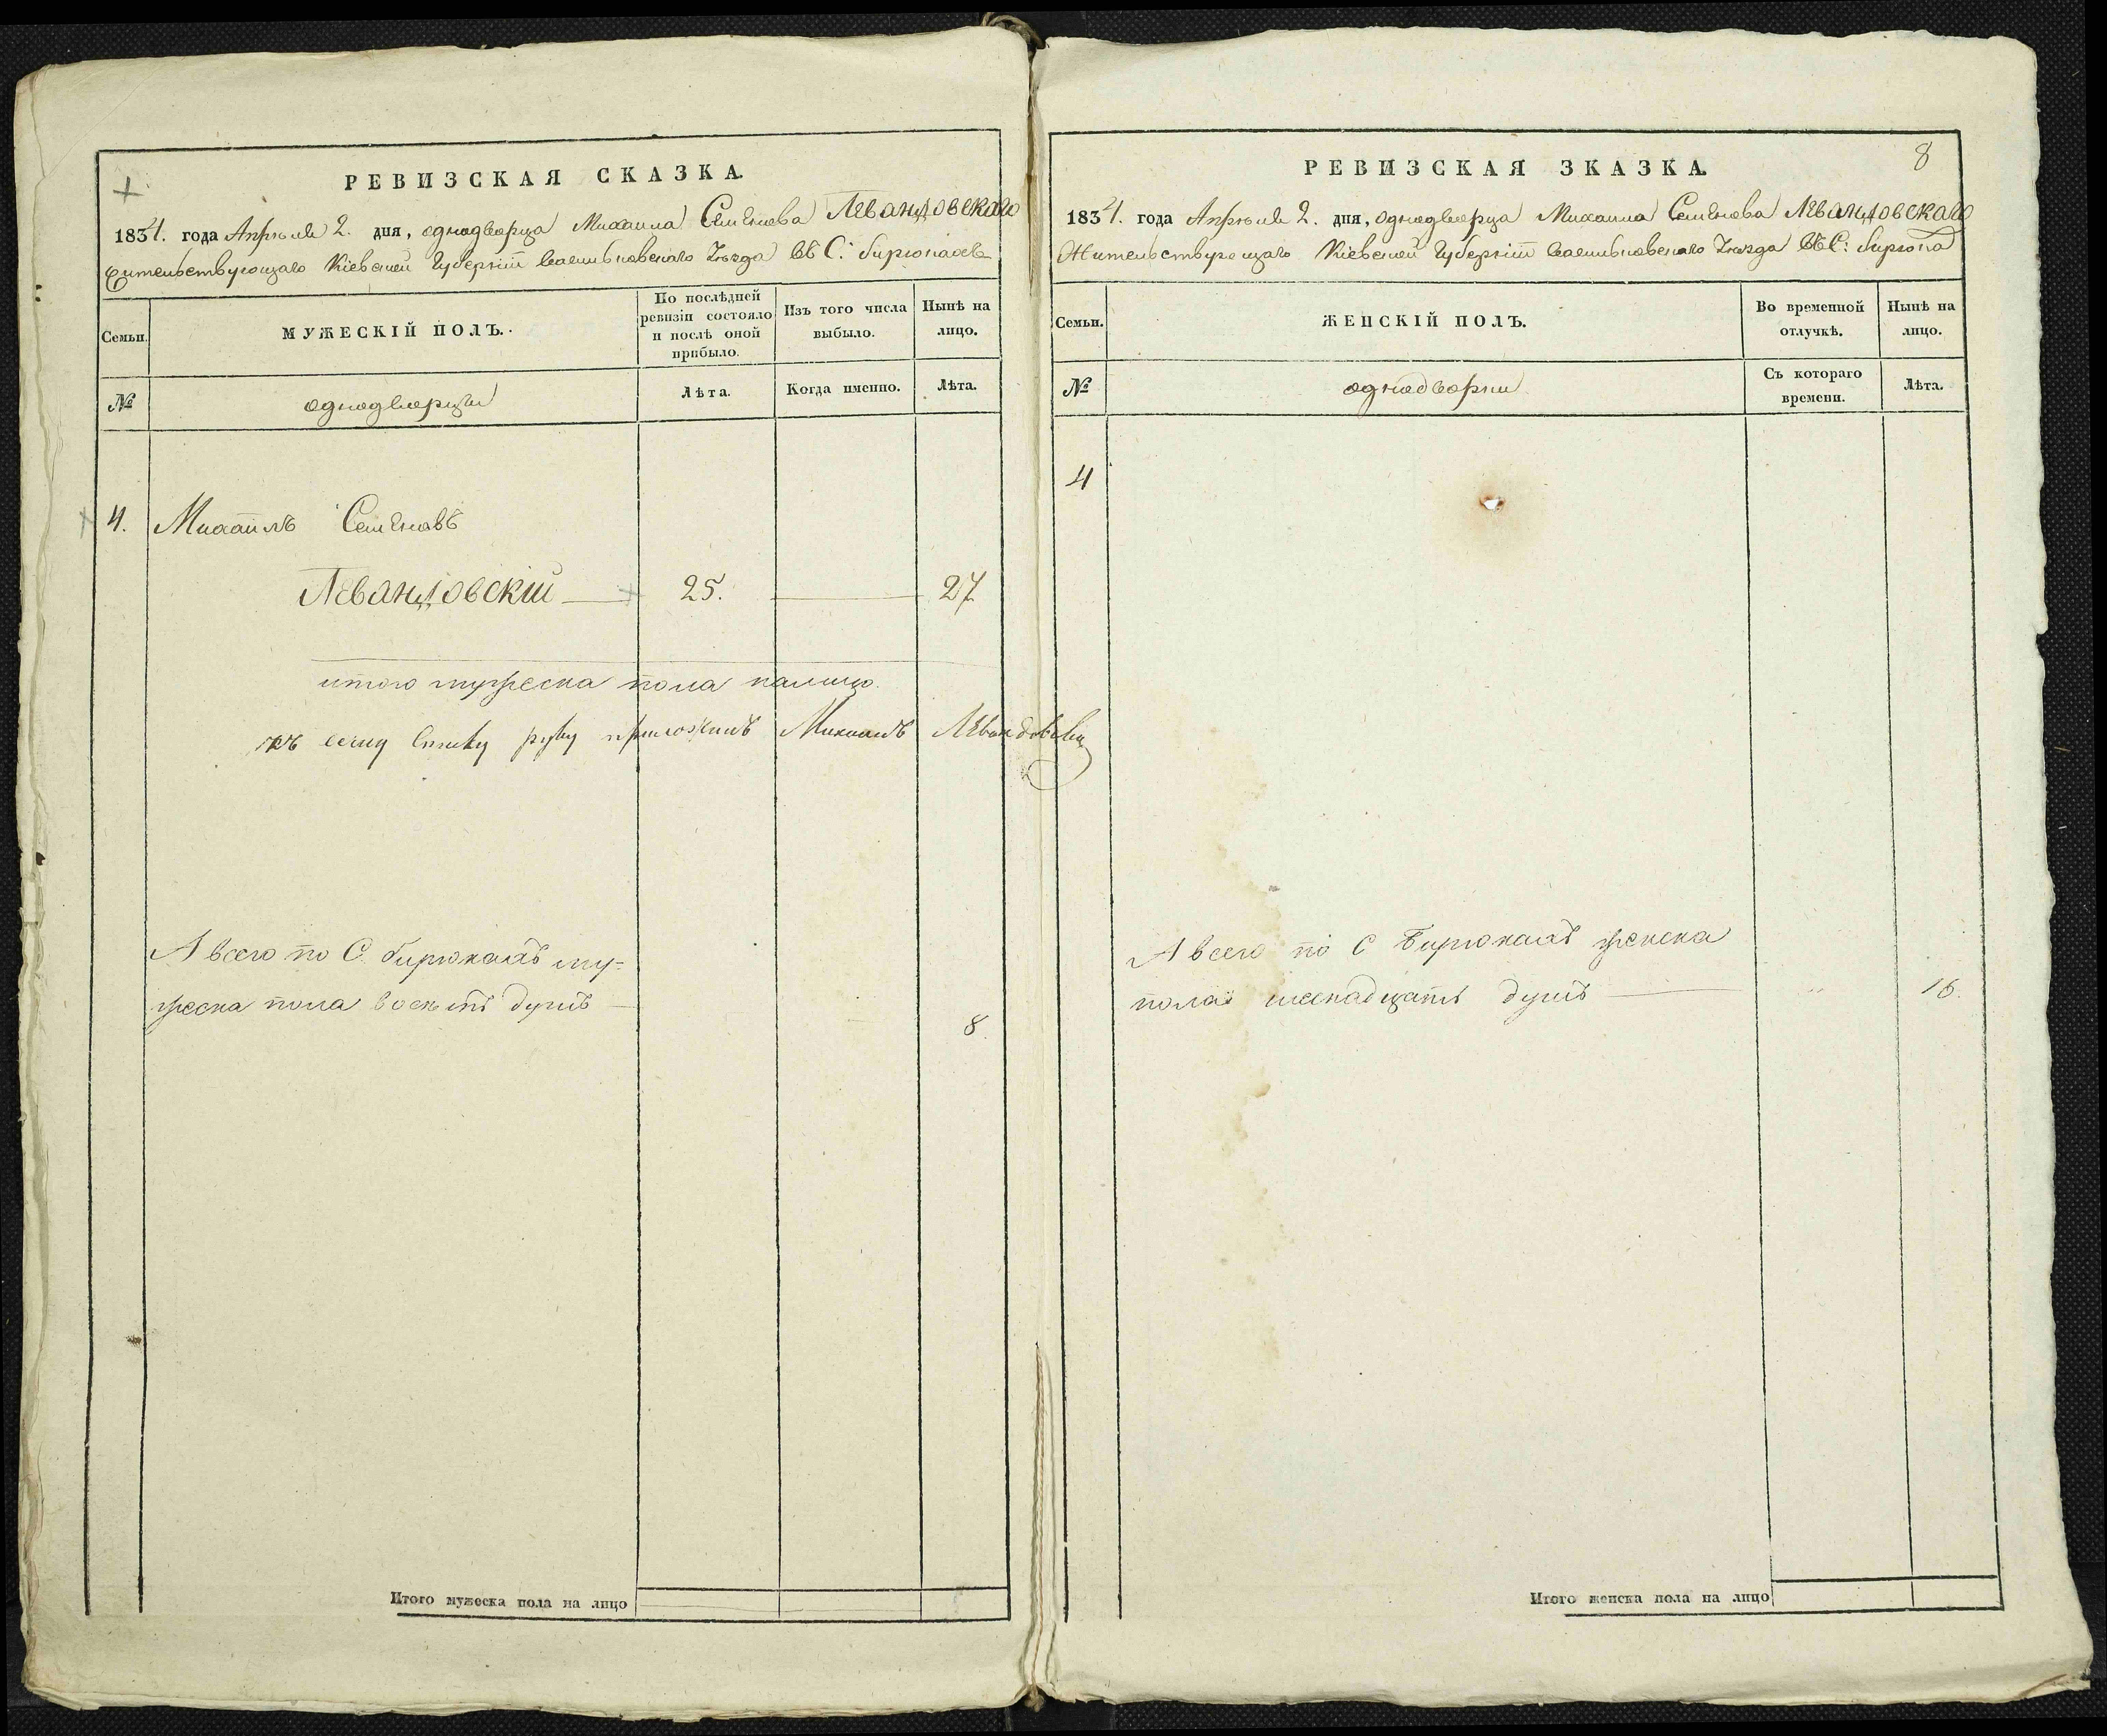 РЕВИЗСКАЯ СКАЗКА.
1834. года Апреля 2. дня, однодворца Михаила Семенова Левандовскаго
жительствующаго Кіевской Губерніи Васильковскаго Уезда въ С: бирюкахъ
Семьи.
МУЖЕСКІЙ ПОЛЪ.
По послѣдней
ревизіи состояло
и послѣ оной
прибыло.
Изъ того числа
выбыло.
Нынѣ на
лицо.
№
однодворцы
Лѣта.
Когда именно.
Лѣта.
4. Михаилъ Семеновъ
Левандовскій 25. 27
итого мужеска пола налицо.
къ сему списку руку приложилъ Михаилъ
А всего по С. бирюкахъ му-
жеска пола восемъ душъ
8.
Итого мужеска пола на лицо
РЕВИЗСКАЯ ЗКАЗКА.
8
1834. года Апреля 2. дня, однодворца Михаила Семенова Левандовскаго
Жительствующаго Кіевской Губерніи Васильковскаго Уезда въ С: бирюка
Семьи.
ЖЕНСКІЙ ПОЛЪ.
Во временной
отлучкѣ.
Нынѣ на
лицо.
№
однодворки
Съ котораго
времени.
Лѣта.
4
А всего по С Бирюкахъ женска
пола шеснадцать душъ 16.
Итого женска пола на лицо